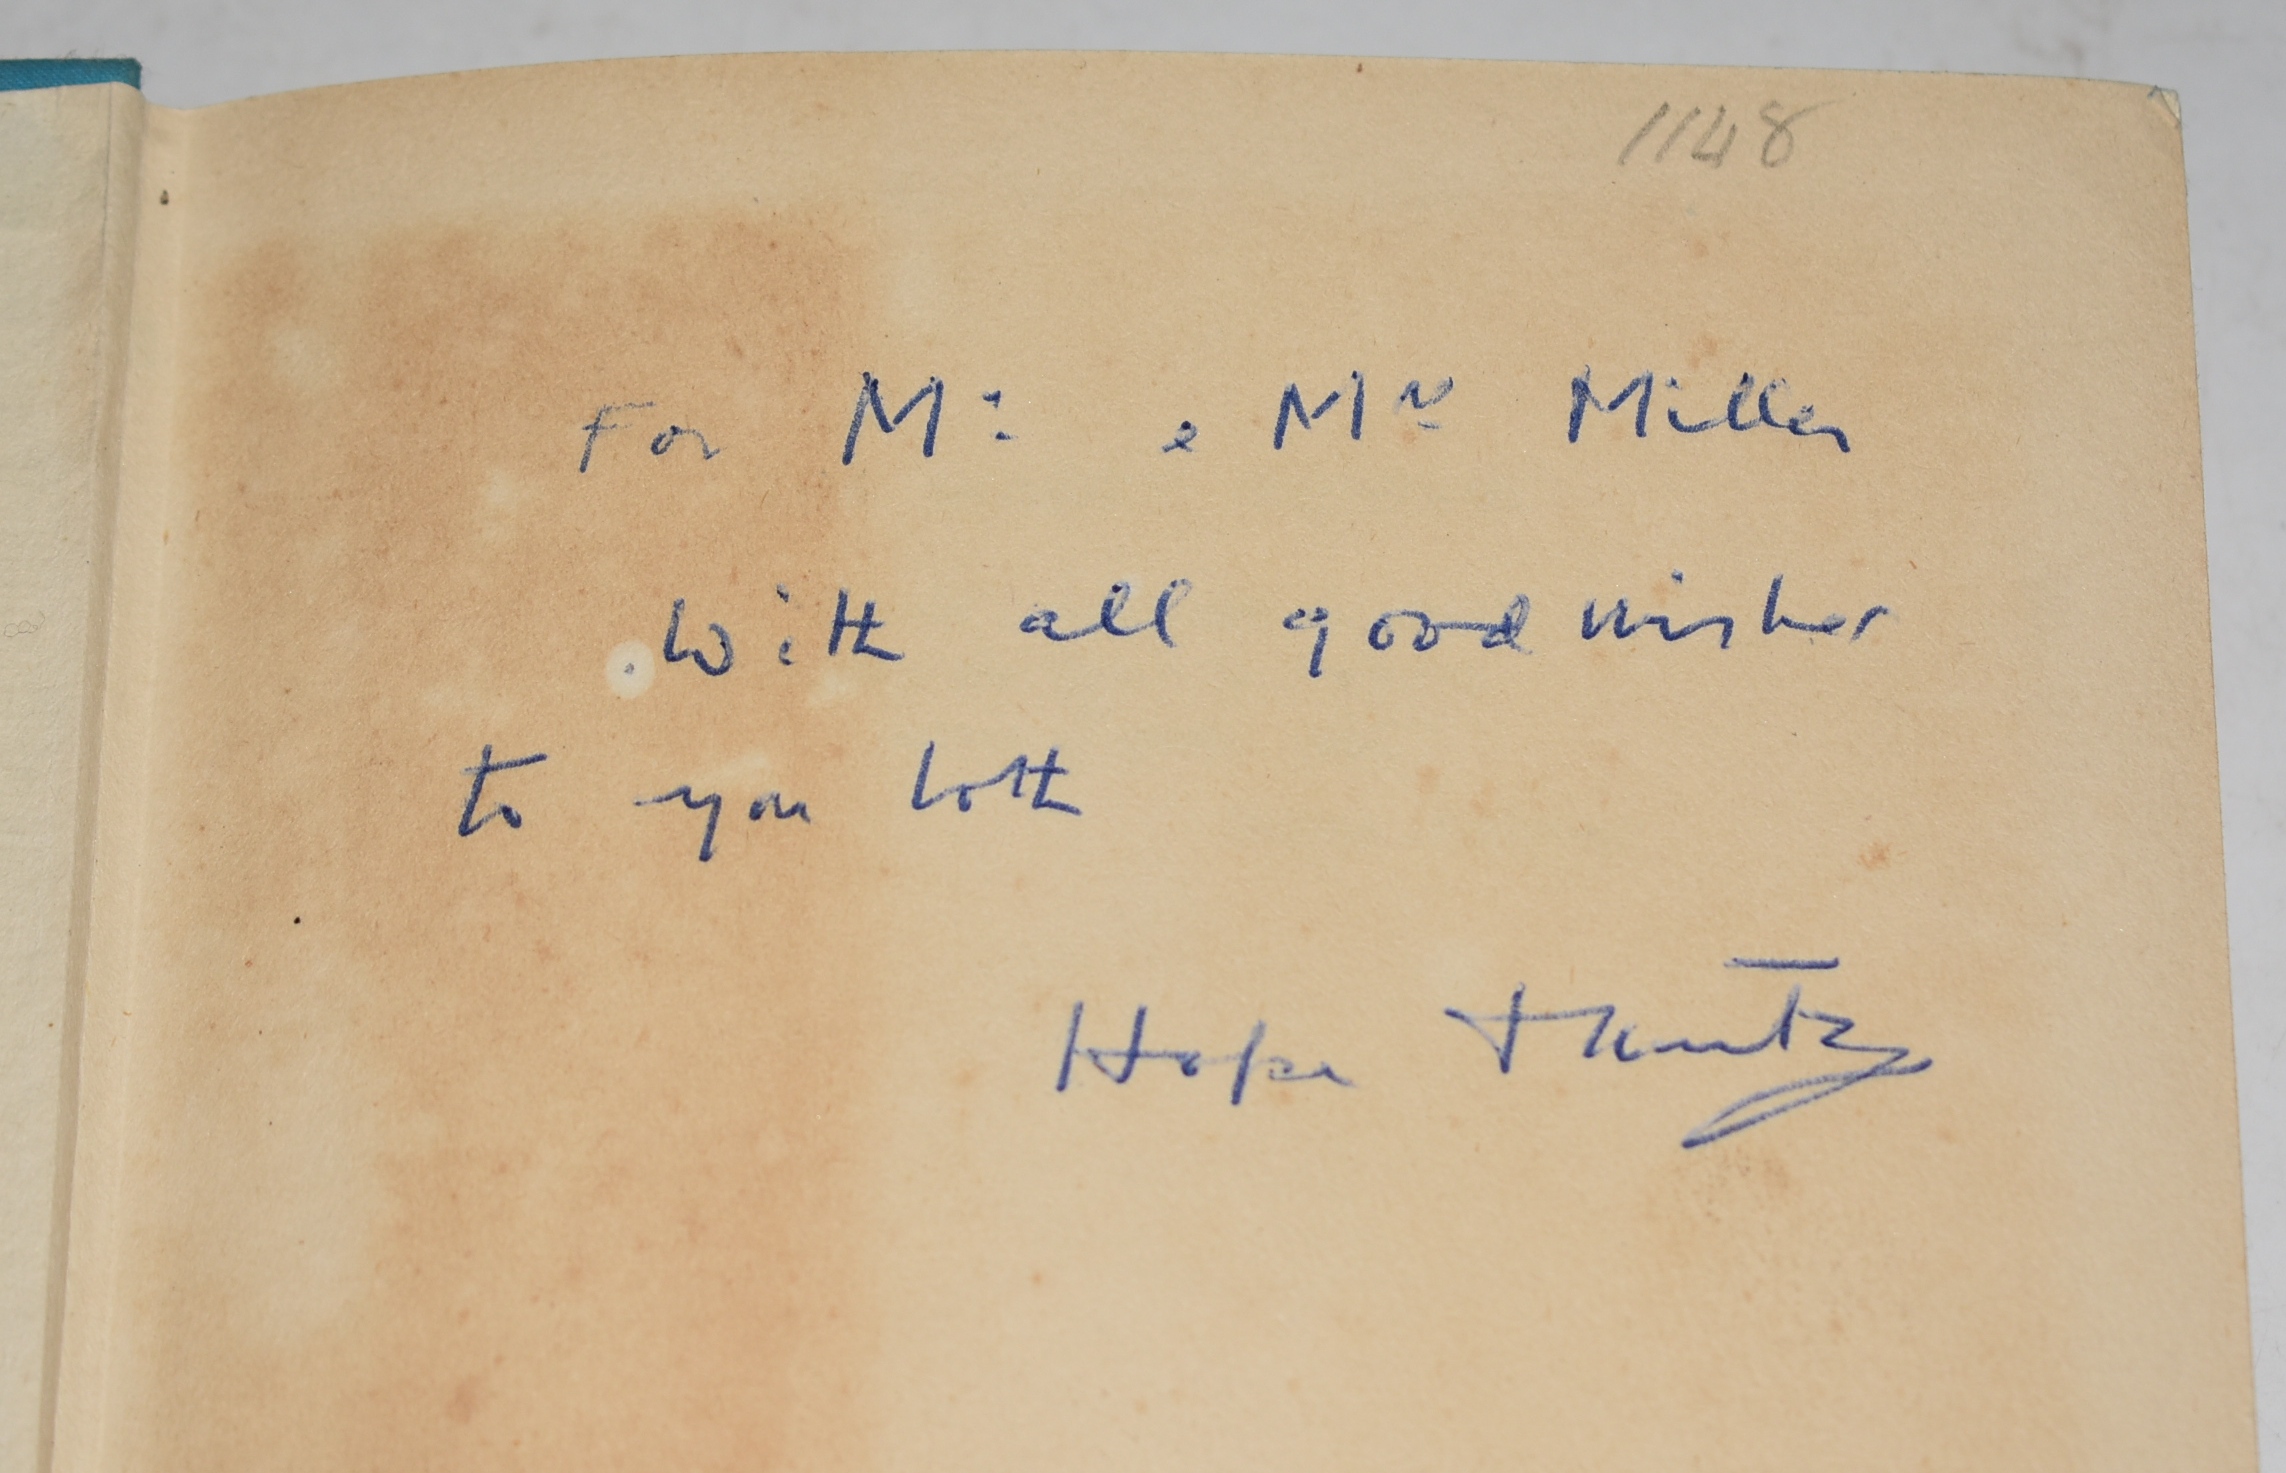 1148
For Mr & Mrs Miller
With all good wishes
to you both
Hope